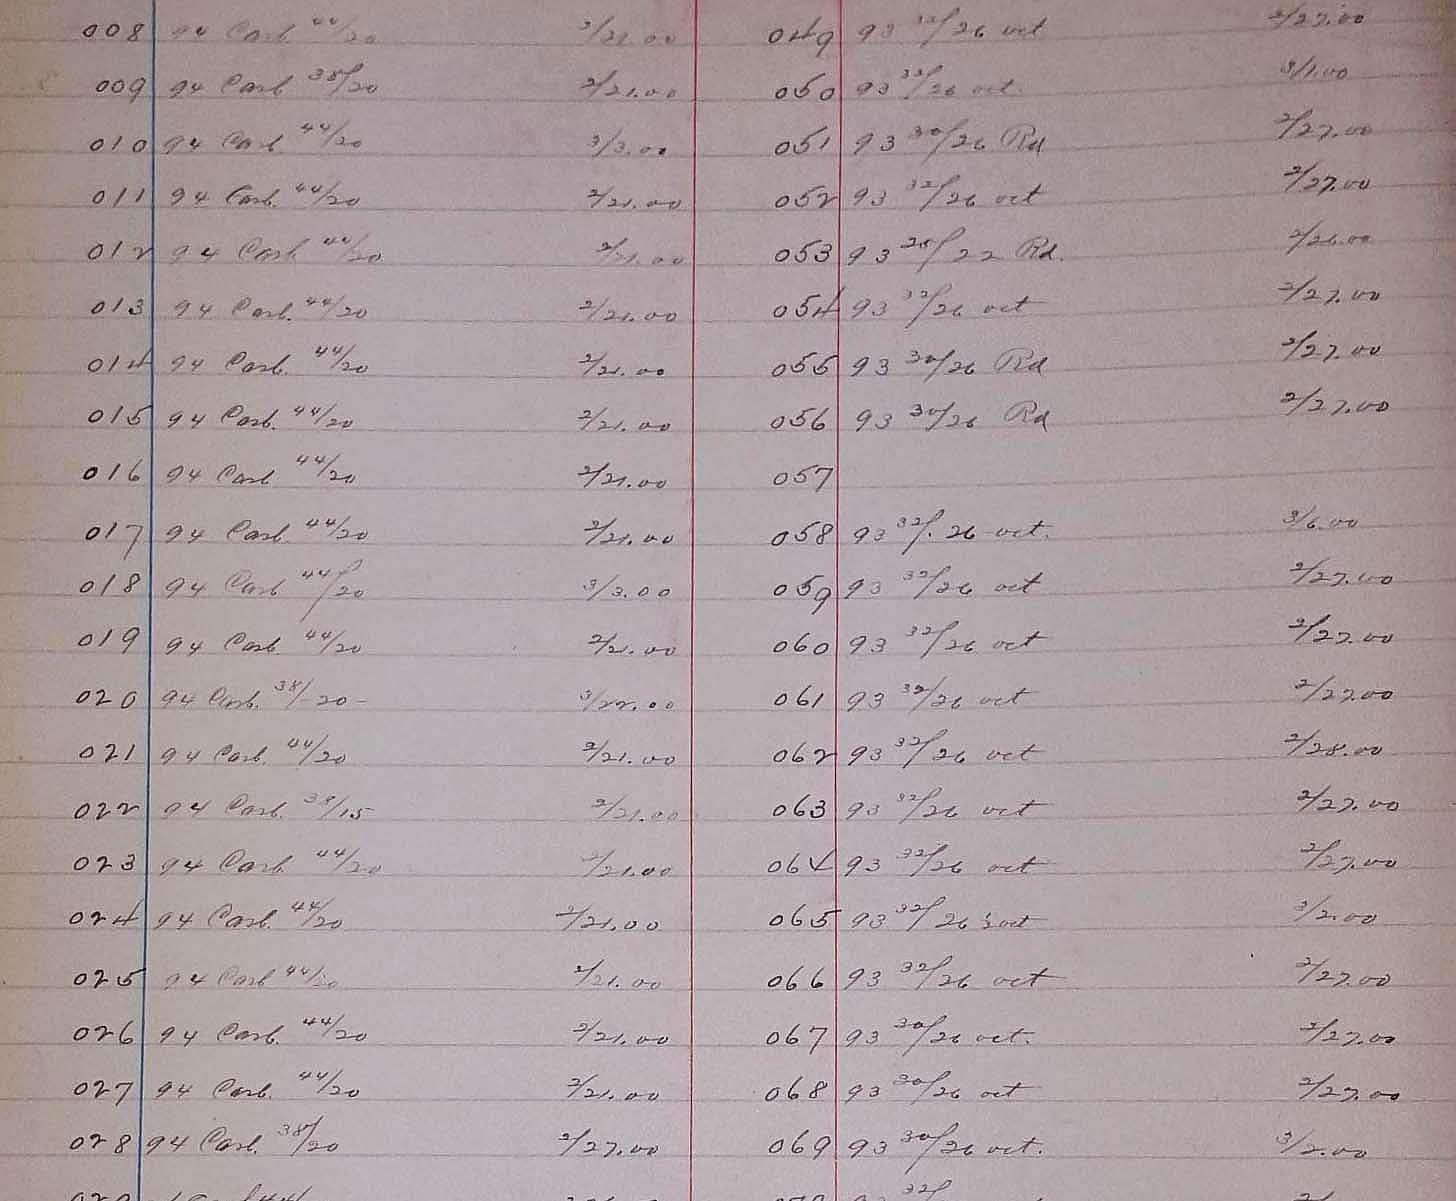 008 94 Carb. 44/20 2/21.00 049 93 32/26 oct 2/27.00
009 94 Carb 38/20 2/21.00 050 93 32/26 oct. 3/1.00
010 94 Carb 44/20 3/3.00 051 93 30/26 Rd 2/27.00
011 94 Carb. 44/20 2/21.00 052 93 32/26 oct 2/27.00
012 94 Carb 44/20 2/21.00 053 93 28/22 Rd. 2/26.00
013 94 Carb. 44/20 2/21.00 054 93 32/26 oct 2/27.00
014 94 Carb. 44/20 2/21.00 055 93 30/26 Rd 2/27.00
015 94 Carb. 44/20 2/21.00 056 93 30/26 Rd 2/27.00
016 94 Carb 44/20 2/21.00 057
017 94 Carb. 44/20 2/21.00 058 93 32/26 oct. 3/6.00
018 94 Carb 44/20 3/3.00 059 93 32/26 oct 2/27.00
019 94 Carb. 44/20 2/21.00 060 93 32/26 oct 2/27.00
020 94 Carb. 38/20 - 3/22.00 061 93 32/26 oct 2/27.00
021 94 Carb. 44/20 2/21.00 062 93 32/26 oct 2/28.00
022 94 Carb. 38/15 2/21.00 063 93 32/26 oct 2/27.00
023 94 Carb. 44/20 2/21.00 064 93 32/26 oct 2/27.00
024 94 Carb. 44/20 2/21.00 065 93 32/26 oct 3/2.00
025 94 Carb. 44/20 2/21.00 066 93 32/26 oct 2/27.00
026 94 Carb. 44/20 2/21.00 067 93 30/26 oct. 2/27.00
027 94 Carb. 44/20 2/21.00 068 93 30/26 oct 2/27.00
028 94 Carb. 38/20 2/27.00 069 93 30/26 oct. 3/2.00